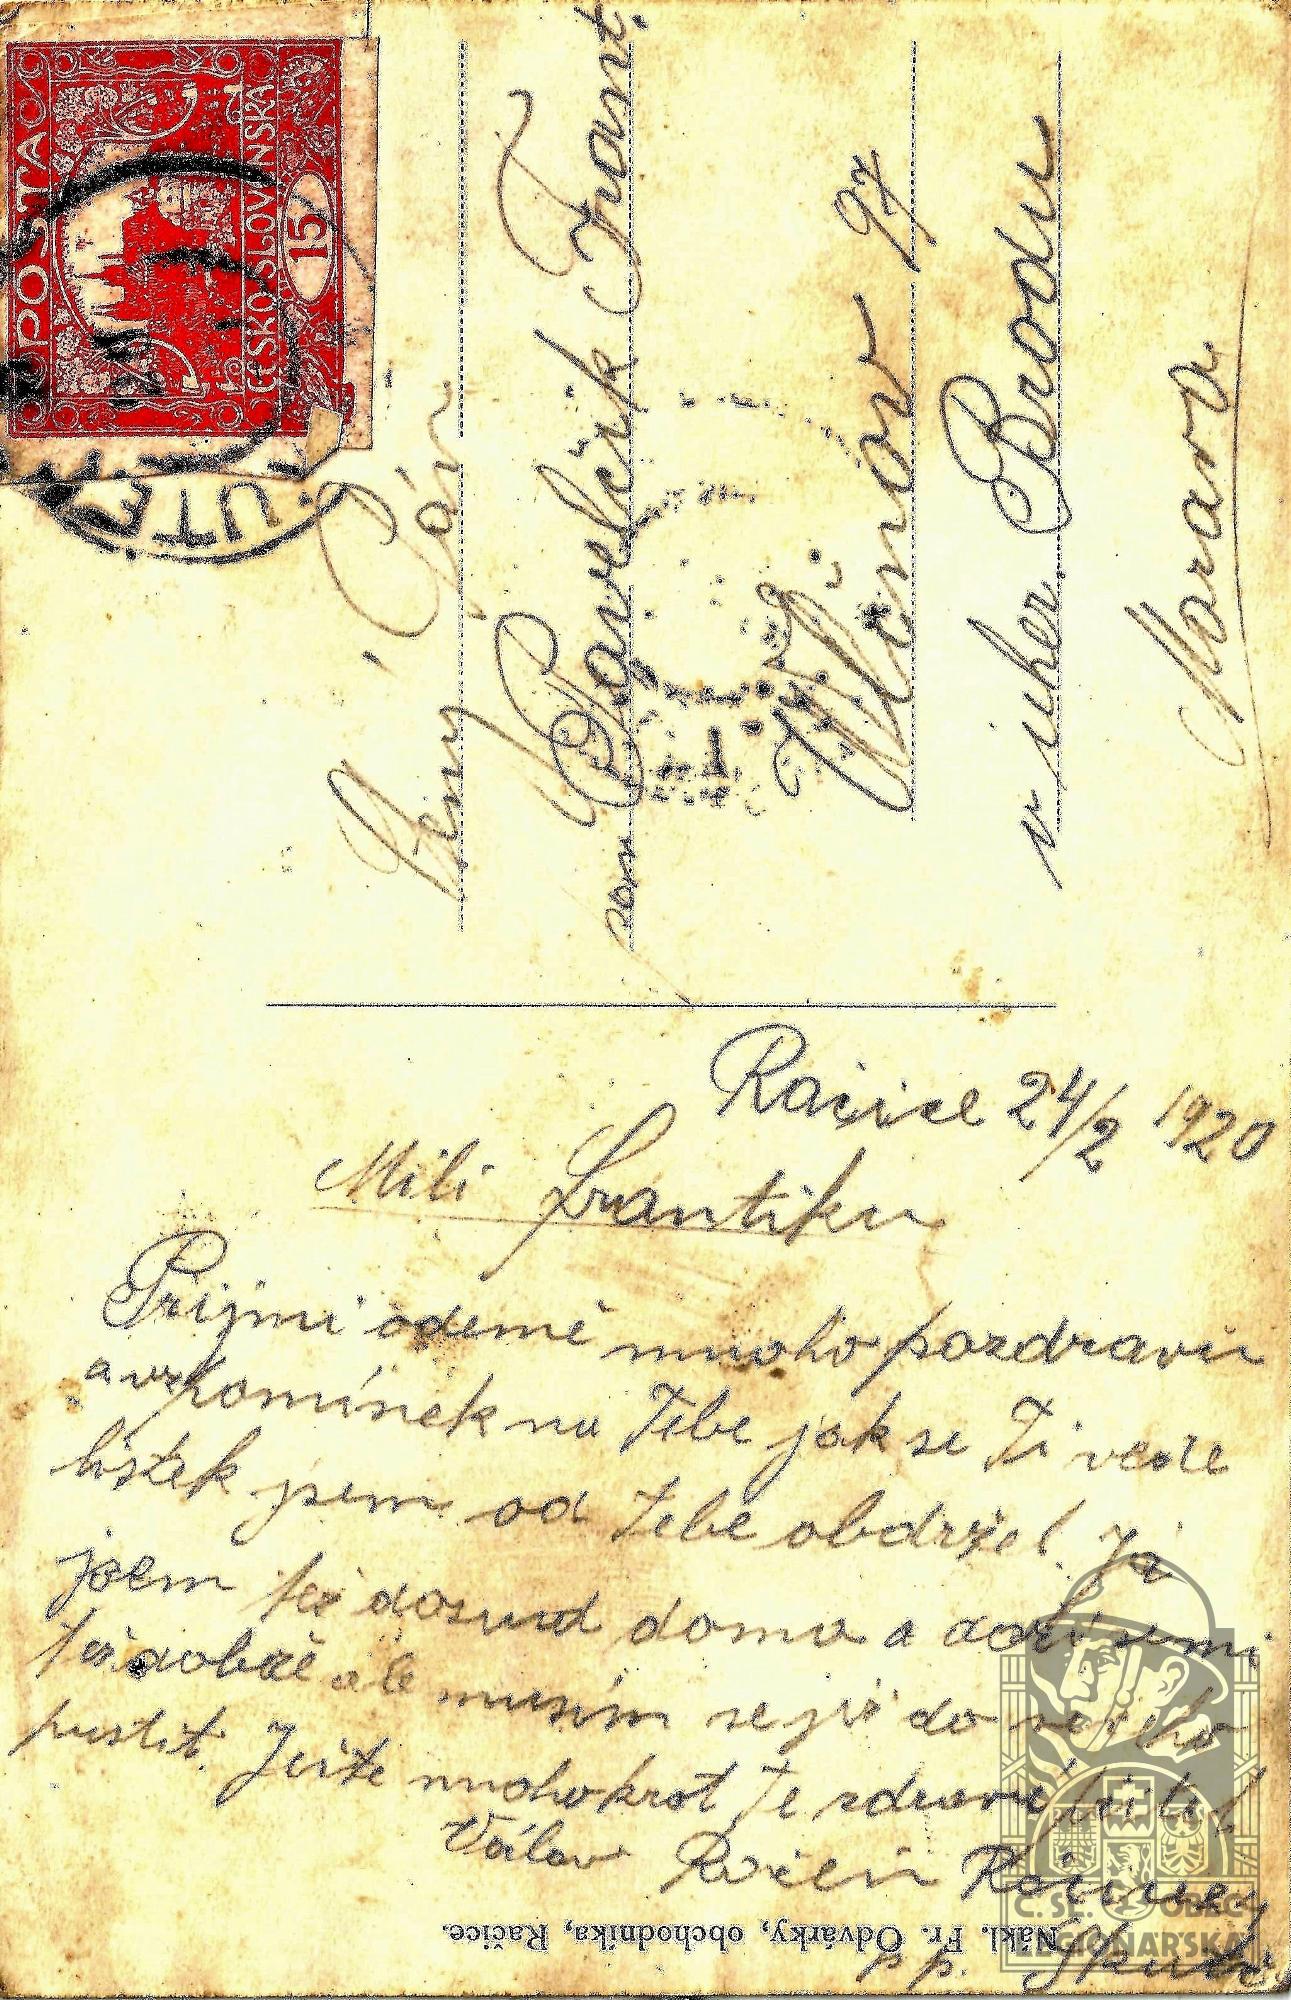 POSTA
ČESKO-SLOVENSKÁ
15
Pán
Pavelčík Frant.
Vlčnov 97
v uher. Brodu
Morava
Račice 24/2 1920
Milí Frantíku
Přijmi odemě mnoho pozdravu
a vzpomínek na Tebe jak se Ti vede
lístek jsem od Tebe obdržel. Já
jsem též dosud doma a daří se mi
též dobře ale musím se již do
pustit. Ještě mnohokrot Te zdraví přítel
Račice
p. p.
Nákl. Fr. Odvárky, obchodníka, Račice.
Č. SL. OBEC
LEGIONÁŘSKÁ